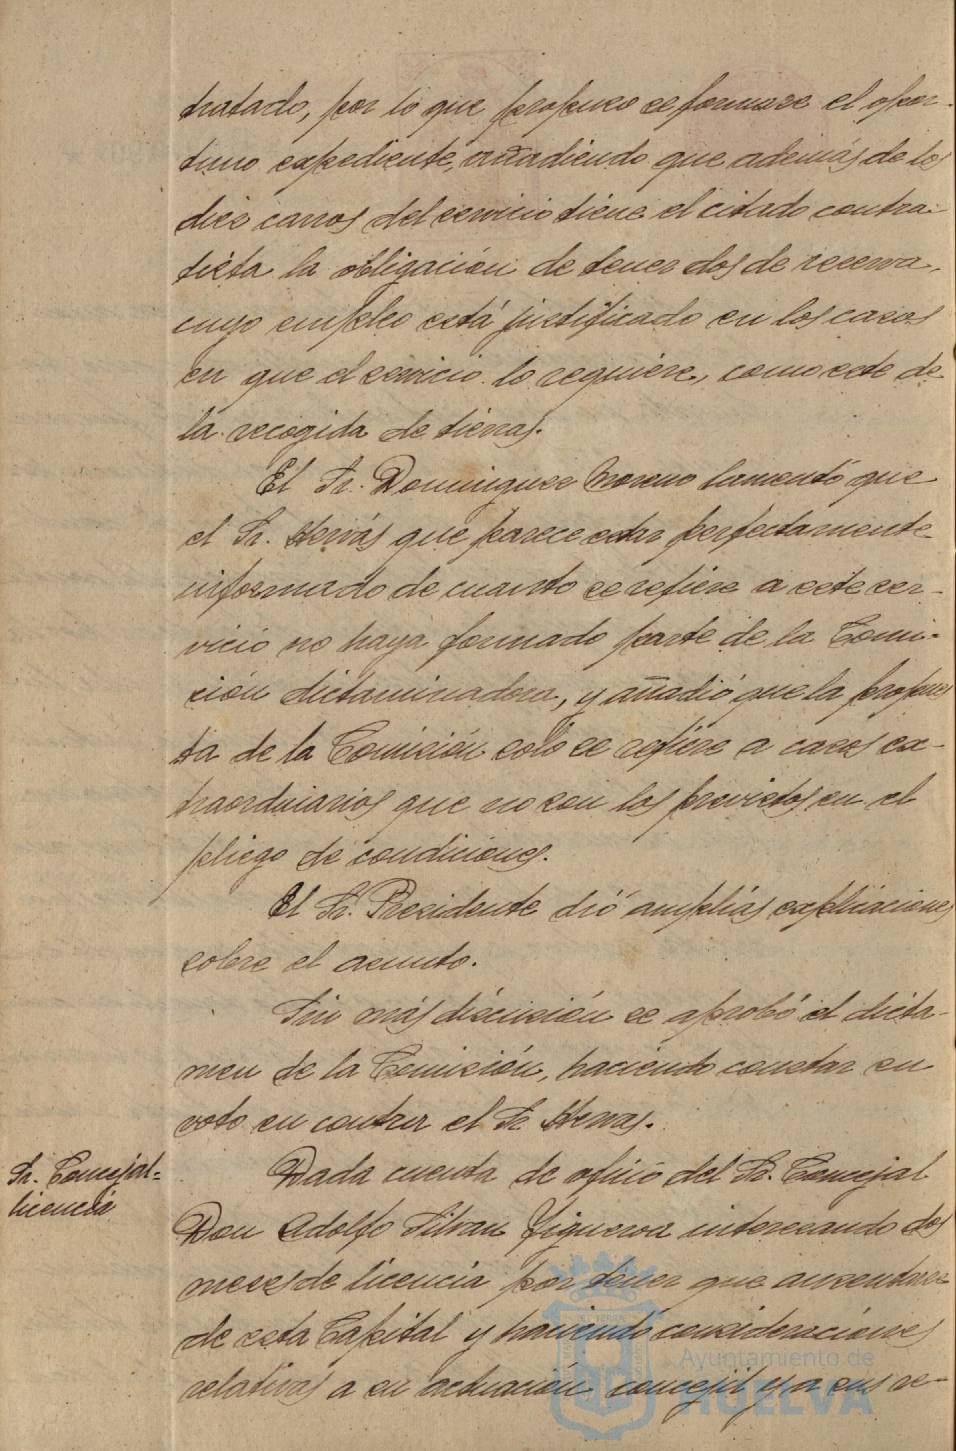 tratado, por lo que propuso se formase el opor-
tuno expediente, añadiendo que además de los
diez carros del servicio tiene el citado contra-
tista la obligación de tener dos de reserva,
cuyo empleo está justificado en los casos
en que el servicio lo requiere, como este de
la recogida de tierras.
El Sr. Dominguez Moreno lamentó que
el Sr. Hervás que parece estar perfectamente
informado de cuanto se refiere a este ser-
vicio no haya formado parte de la Comi-
sión dictaminadora, y añadió que la propues
ta de la Comisión solo se refiere a casos ex-
traordinarios que no son los previstos en el
pliego de condiciones.
El Sr. Presidente dió amplias explicaciones
sobre el asunto.
Sin más discusión se aprobó el dicta-
men de la Comisión, haciendo constar su
voto en contra el Sr Hervas.
Sr. Concejal=
licencia
Dada cuenta de oficio del Sr. Concejal
Don Adolfo Silvan Figueroa interesando dos
meses de licencia por tener que ausentarse
de esta Capital y haciendo consideraciones
relativas a su actuación concejil y a sus re-
Ayuntamiento de
HUELVA